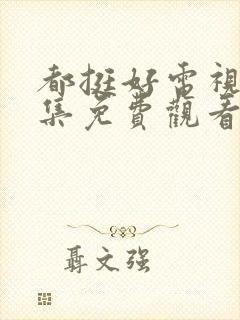 都挺好電視
集免費觀看
聶文强